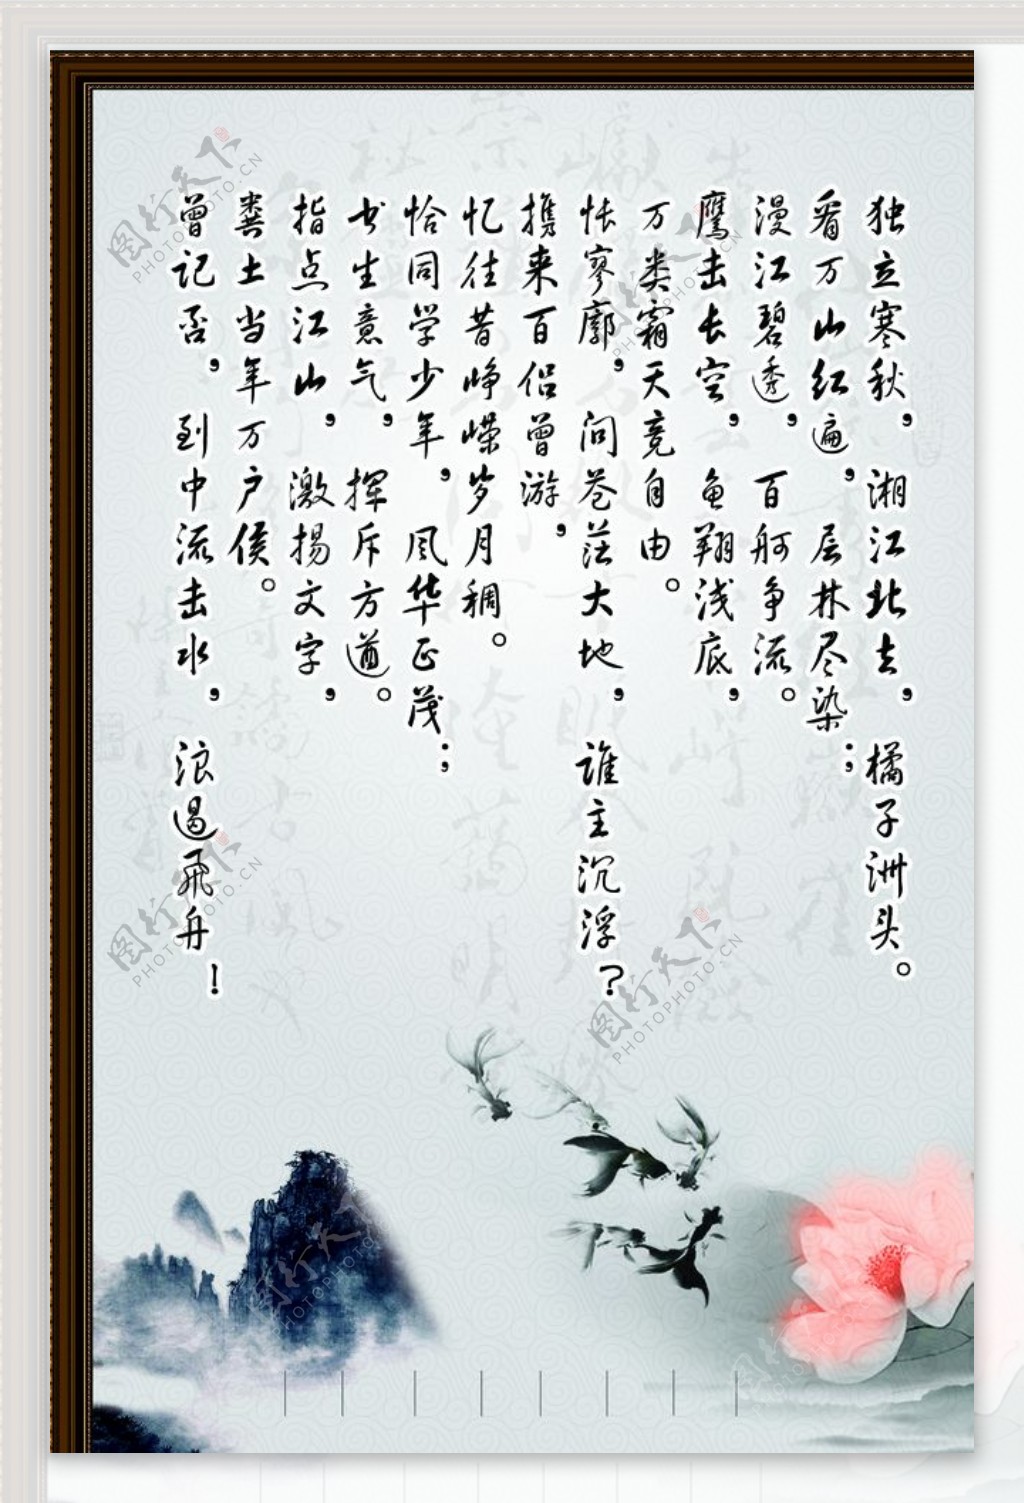 独立寒秋，湘江北去，橘子洲头。
看万山红遍，层林尽染；
漫江碧透，百舸争流。
鹰击长空，鱼翔浅底，
万类霜天竞自由。
怅寥廓，问苍茫大地，谁主沉浮？
携来百侣曾游，
忆往昔峥嵘岁月稠。
恰同学少年，风华正茂；
书生意气，挥斥方遒。
指点江山，激扬文字，
粪土当年万户侯。
曾记否，到中流击水，浪遏飞舟！
图行天下
PHOTOPHOTO.CN